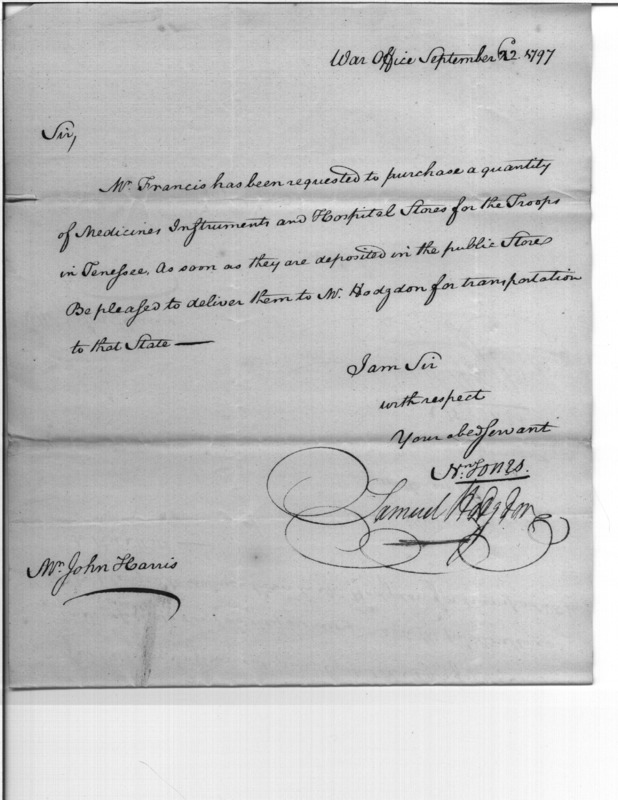 War Office September 22d. 1797
Sir,
Mr. Francis has been requested to purchase a quantity
of Medicines Instruments and Hospital Stores for the Troops
in Tenessee. As soon as they are deposited in the public Store
Be pleased to deliver them to Mr. Hodgdon for transportation
to that State —
I am Sir
with respect
Your obed Servant
Wm. Jones.
Samuel Hodgdon
Mr. John Harris